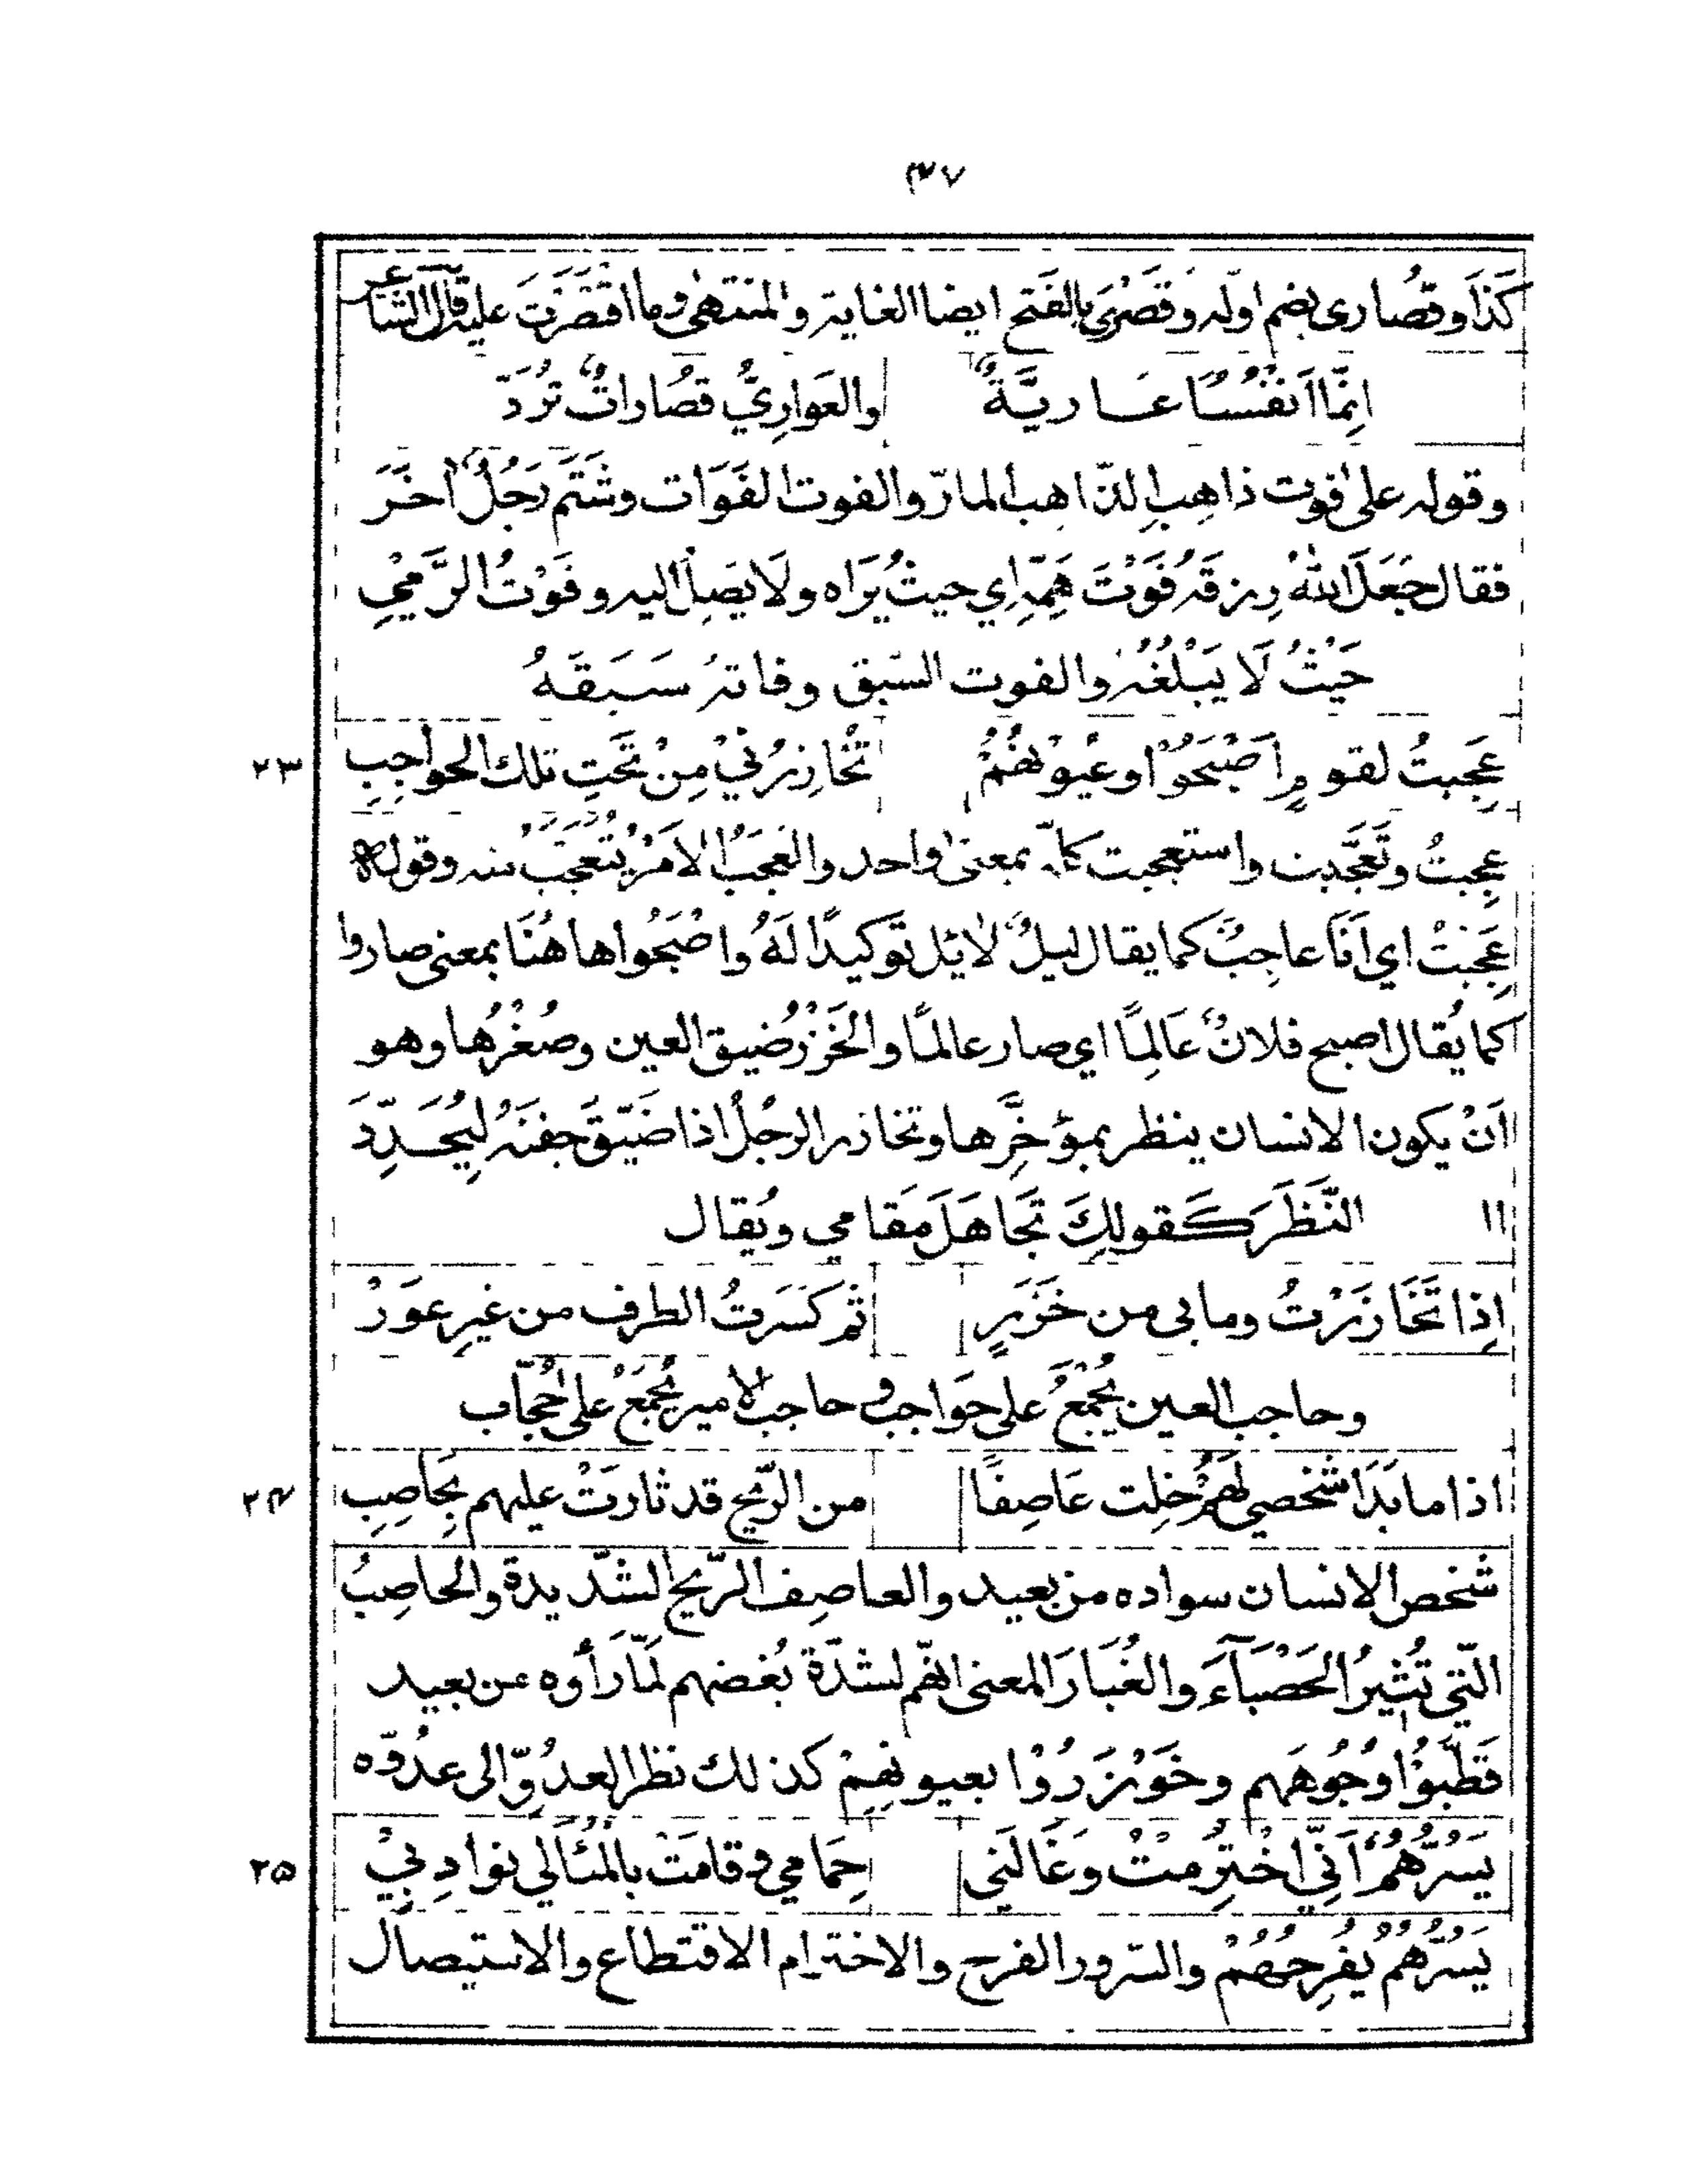 ۴۷
كَذَا وقُصارى بضم اوله وقَصْرَى بالفَتح ايضا الغاية والمنتهى وما اقتَصَرْتَ عليه قال الشاعر
اِنَّما اَنفُسُنا عــارِيَّةٌ والعَوارِيُّ قصُاراتٌ تُرَدّ
وقوله على فوت ذاهبِ الذّاهب المارّ والفوت الفَوَات وشَتَم رَجُلٌ اٰخَرَ
فقال جَعَلَ اللهُ رِزقَهُ فَوْتَ فَمِهِ اي حيثُ يَرَاه ولَا يَصِلُ اليه وفَوْتُ الرَّمْيِ
حَيْثُ لَا يَبْلُغُهُ والفوت السَّبق وفاته سَبَقَهُ
عَجِبتُ لقومٍ اَصْبَحُوْا وعُيونُهُمْ تُخازِرُنيْ مِنْ تَحَتِ تلك الحواجِبِ ۲۳
عجِبتُ وتَعَجَّبت واستعجبت كلّه بمعنىً واحد والعَجَبُ الاَمْرُ يُتَعَجَّبُ منه وقوله
عَجِبْتُ اي اَنَا عاجِبٌ كما يقال ليلٌ لائل تَوكيدًا لَهُ واصْبَحُوا هاهُنَا بمعنى صاروا
كما يُقال اصبح فلانٌ عَالِمًا اي صار عالمًا والخَزْرُ ضيق العين وصُغْرُها وهو
اَنْ يكون الانسان ينظر بمؤخَّرِها وتخازر الرجُلُ اذا ضَيَّقَ جفنَهُ لِيُحَــدِّدَ
النَّظَرَ كَقولِكَ تَجَاهَلَ مَقامي ويُقال ۱۱
اِذا تَخَازَرْتُ ومابى من خَزَرٍ ثم كَسَرتُ الطرف من غيرِ عوَرْ
وحاجب العين يُجْمَعُ على حَواجب وحاجب الامير يُجْمَعُ على حُجّاب
اذا ما بَدَا شخصي لَهُمْ خِلت عَاصِفًا من الرّيح قد ثارَتْ عليهم بِحَاصِبِ ۲۴
شخص الانسان سواده من بعيد والعاصِف الرّيح الشّديدة والحاصِبُ
الّتي تُثيرُ الحَصْبَآءَ والغُبَارَ المعنى انّهم لشدّة بُغضهم لمّا رأوه من بعيد
قَطَّبُوْا وُجُوهَهم وخَوْزَرُوْا بعيونِهِمْ كذلك نظر العدُوِّ الى عدُوّه
يَسُرُّهُمُ اَنّي اخْتُرِمتُ وغَالَني حِمَامي وقامَتْ بالمَئَالي نوادِبيْ ۲۵
يَسُرُّهُمْ يُفرِحُهُمْ والسّرور الفرح والاخترام الاقتطاع والاستيصال